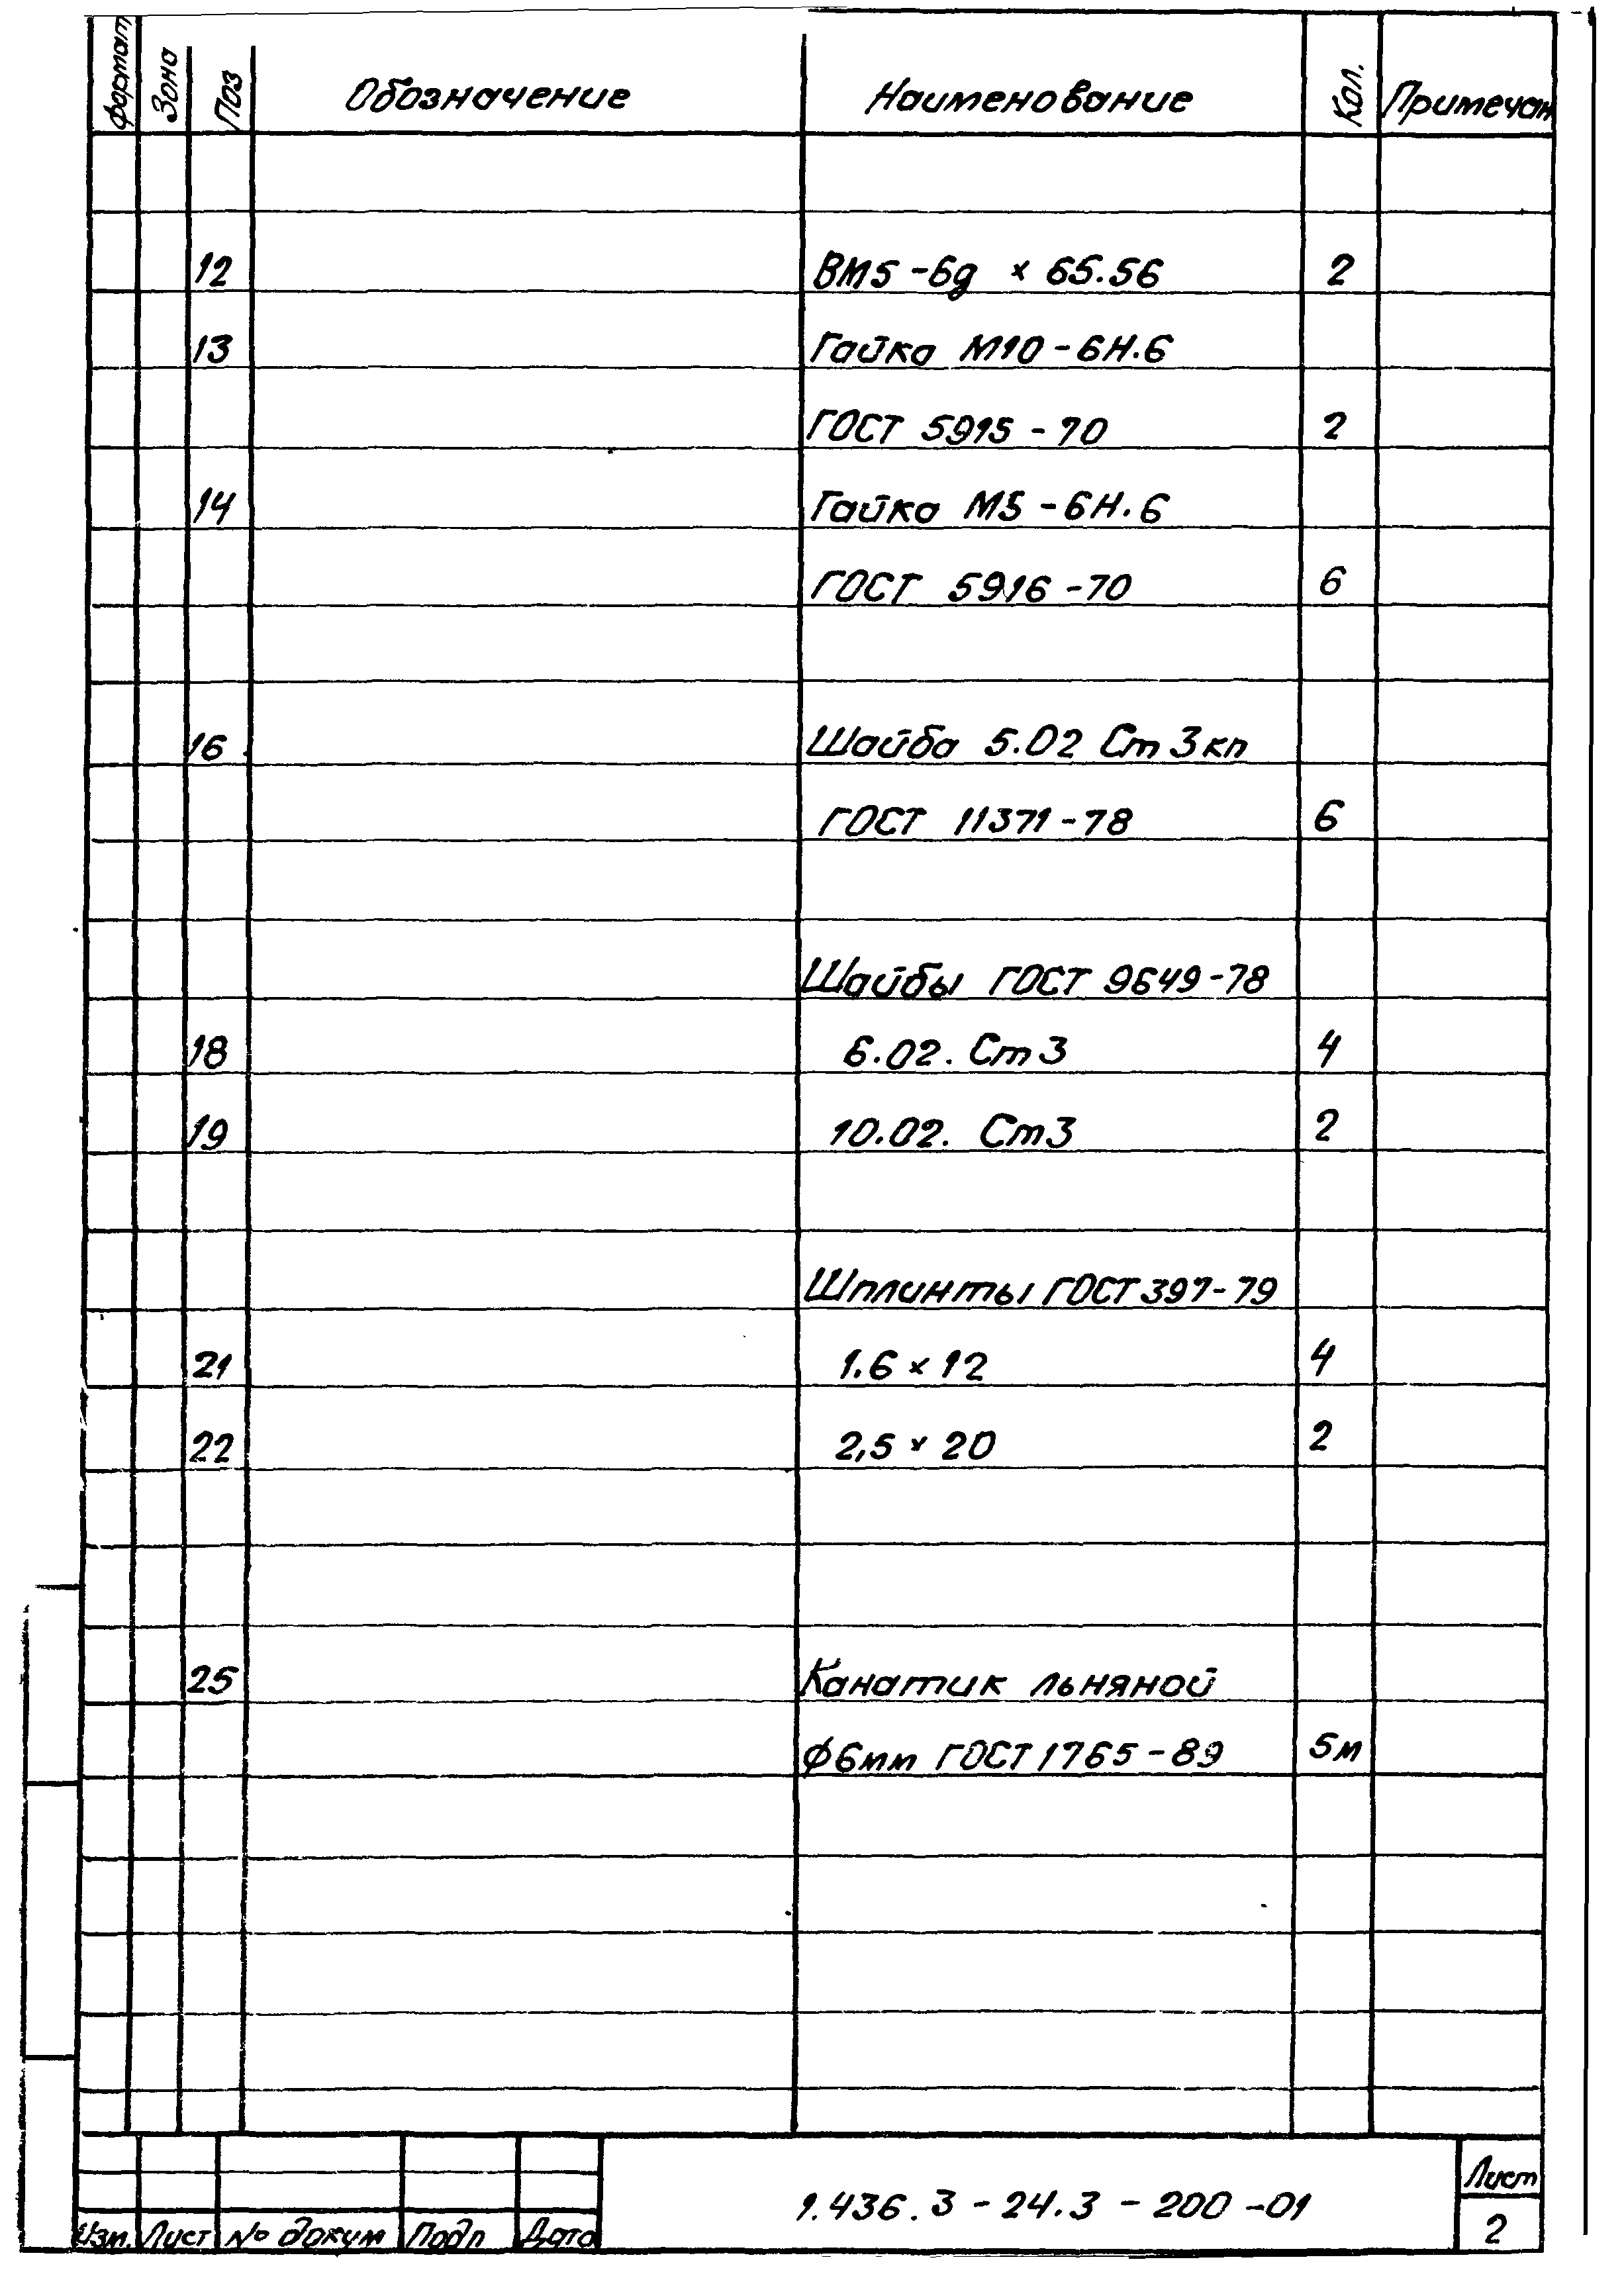 Формат Зона Поз Обозначение Наименование Кол. Примечан
12 ВМ5-6g × 65.56 2
13 Гайка М10-6Н.6
ГОСТ 5915-70 2
14 Гайка М5-6Н.6
ГОСТ 5916-70 6
16 Шайба 5.02 Ст 3кп
ГОСТ 11371-78 6
Шайбы ГОСТ 9649-78
18 6.02. Ст3 4
19 10.02. Ст3 2
Шплинты ГОСТ 397-79
21 1.6 × 12 4
22 2,5 × 20 2
25 Канатик льняной
ф6мм ГОСТ 1765-89 5м
1.436.3-24.3-200-01 Лист
Изм. Лист № докум Подп Дата 2